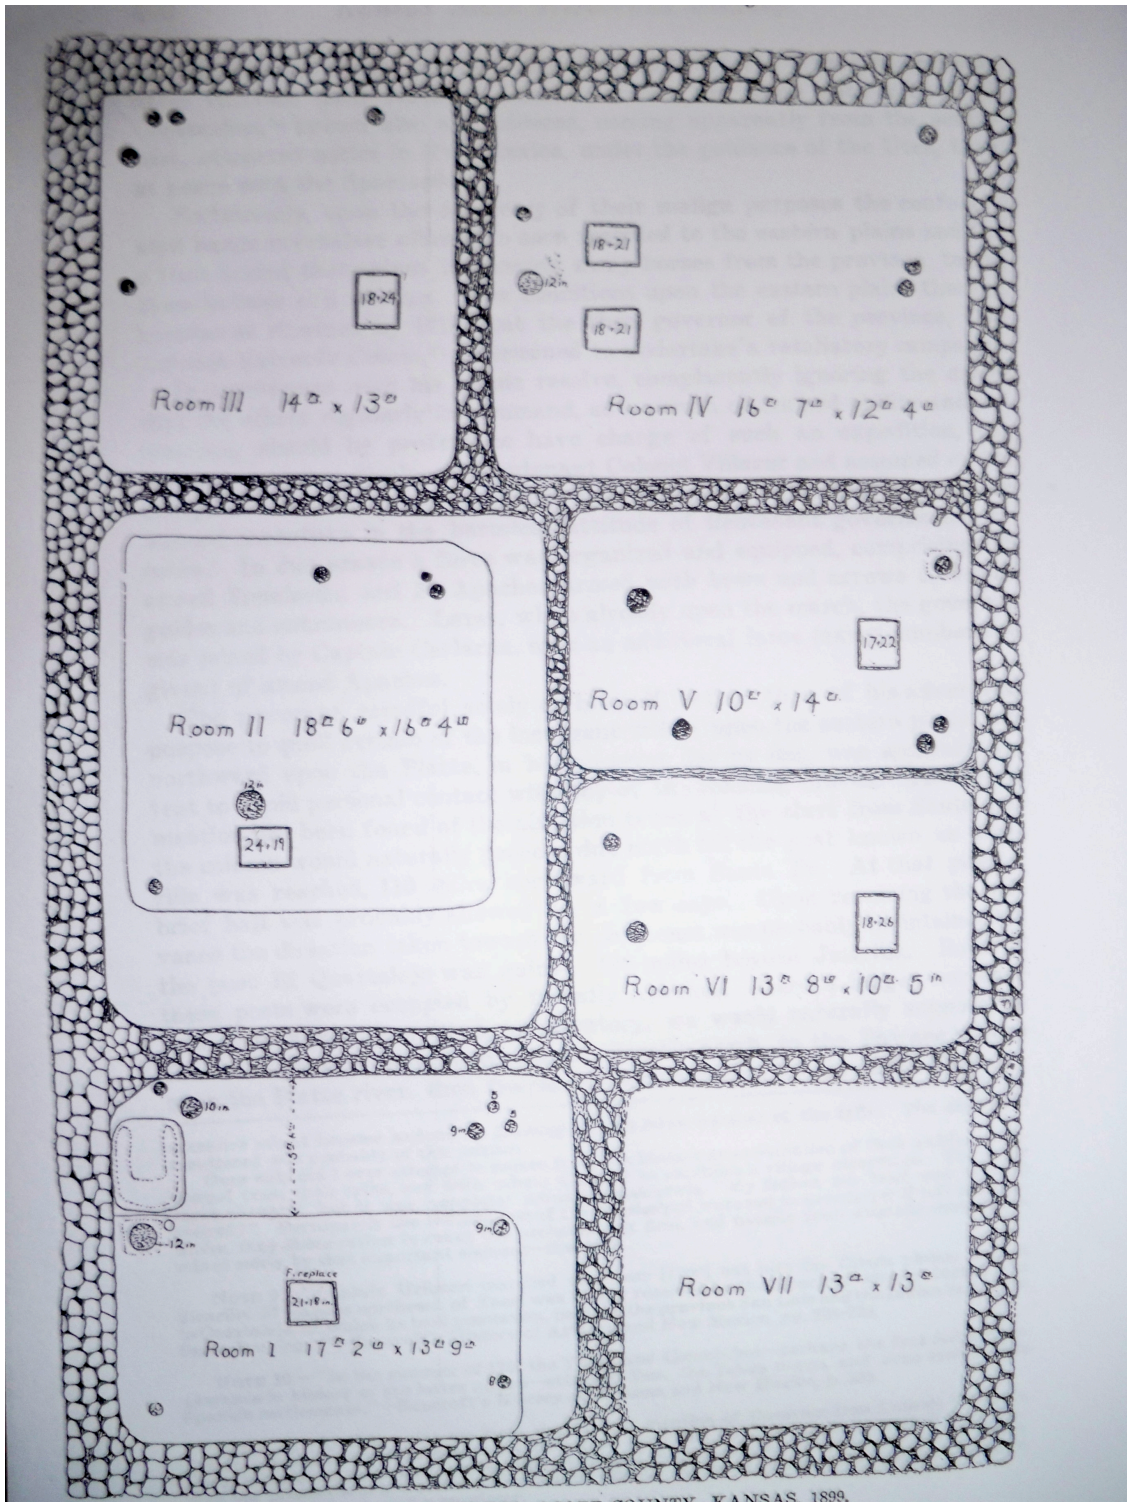 18×24
Room III 14ft x 13ft
18×21
12in
18×21
Room IV 16ft 7in x 12ft 4in
Room II 18ft 6in x 16ft 4in
12in
24×19
17×22
Room V 10ft x 14ft
18×26
Room VI 13ft 8in x 10ft 5in
10in
5
9in
5
12in
9in
Fireplace
21×18in
Room I 17ft 2in x 13ft 9in
8
Room VII 13ft x 13ft
COUNTY, KANSAS, 1899.